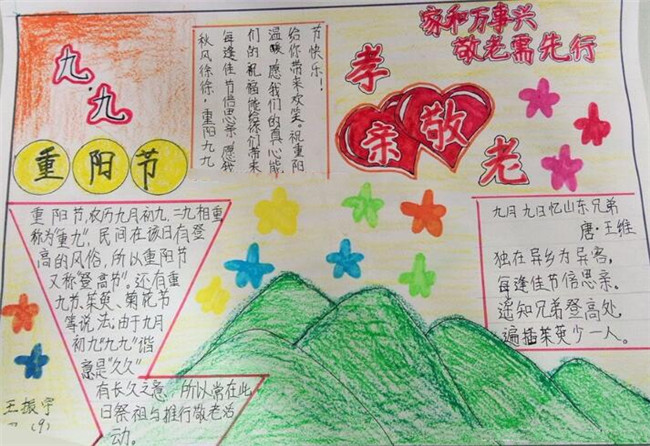 九·九
重阳节
秋风徐徐,重阳九九
每逢佳节倍思亲,愿我
们的祝福能给你们带来
温暖,愿我们的真心能
给你带来欢笑。祝重阳
节快乐!
家和万事兴
敬老需先行
孝亲敬老
重阳节,农历九月初九,二九相重
称为"重九",民间在该日有登
高的风俗,所以重阳节
又称"登高节"。还有重
九节、茱萸、菊花节
等说法,由于九月
初九"九九"谐
意是"久久"
有长久之意,所以常在此
日祭祖与推行敬老活
动。
九月九日忆山东兄弟
唐·王维
独在异乡为异客,
每逢佳节倍思亲。
遥知兄弟登高处,
遍插茱萸少一人。
王振宇
(9)